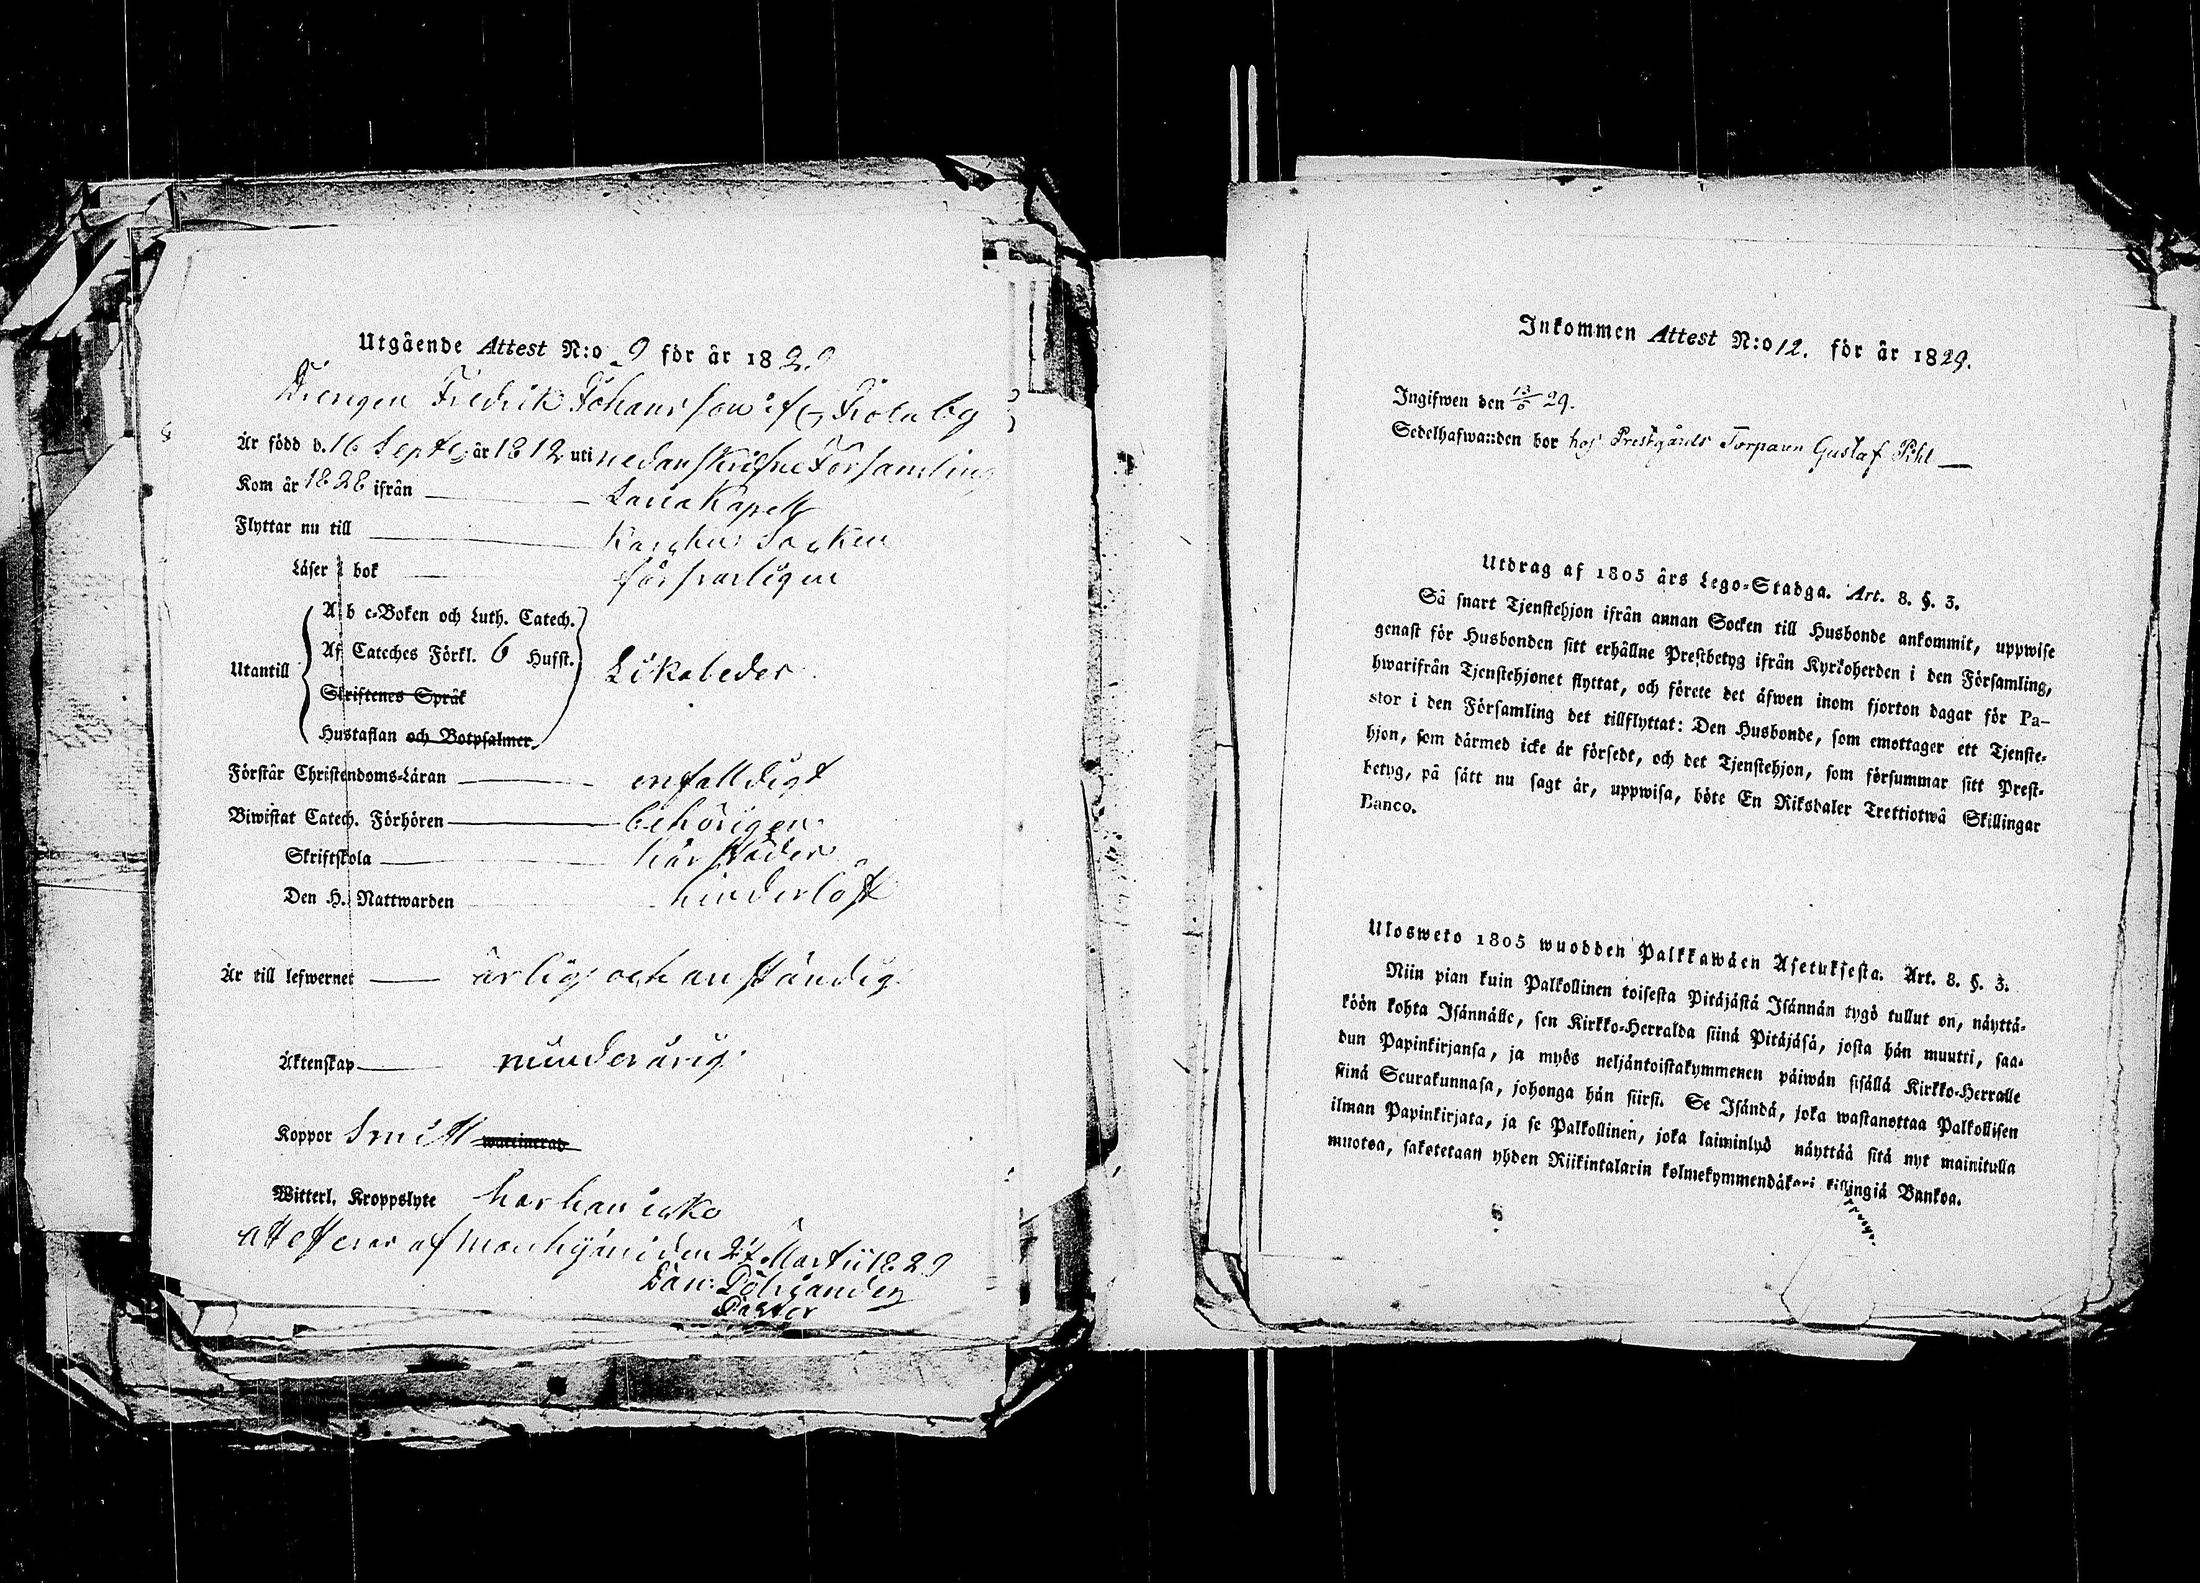 Utgående Attest N:o 9 för år 1829.
Drengen Fredrik Johansson ifr
Är född d. 16 Septe år 1812 uti nedanskrefne Församling
Kom år 1828 ifrån — Karia Kapell
Flyttar nu till — Karghus Socken
Läser i bok — försvarligen
A b c-Boken och Luth. Catech.
Utantill Af Cateches Förkl. 6 Husst. Likaledes
Skriftenes Språk
Hustaflan och Botpsalmer.
Förstår Christendoms-Läran — enfalldigt
Biwistat Catech. Förhören — behörigen
Skriftskola — härstädes
Den H. Nattwarden — hinderlöst
Är till lefwernet — ärlig och anständig
Äktenskap — minderårig.
Koppor haft waccinerad
Witterl. Kroppslyte har han icke
attesterar af den 27 Martii 1829
Dan:
Pastor
Inkommen Attest N:o 12. för år 1829.
Ingifwen den 29.
Sedelhafwanden bor hos Prestgårds Torparn Gustaf Pihl —
Utdrag af 1805 års Lego-Stadga. Art. 8. §. 3.
Så snart Tjenstehjon ifrån annan Socken till Husbonde ankommit, uppwise
genast för Husbonden sitt erhållne Prestbetyg ifrån Kyrkoherden i den Församling,
hwarifrån Tjenstehjonet flyttat, och förete det äfwen inom fjorton dagar för Pa-
stor i den Församling det tillflyttat: Den Husbonde, som emottager ett Tjenste-
hjon, som därmed icke är försedt, och det Tjenstehjon, som försummar sitt Prest-
betyg, på sätt nu sagt är, uppwisa, böte En Riksdaler Trettiotwå Skillingar
Banco.
Ulosweto 1805 wuodden Palkkawäen Asetuksesta. Art. 8. §. 3.
Niin pian kuin Palkollinen toisesta Pitäjästä Isännän tygö tullut on, näyttä-
köön kohta Isännälle, sen Kirkko-Herralda siinä Pitäjäsä, josta hän muutti, saa-
dun Papinkirjansa, ja myös neljäntoistakymmenen päiwän sisällä Kirkko-Herralle
siinä Seurakunnasa, johonga hän siirsi. Se Isändä, joka wastanottaa Palkollisen
ilman Papinkirjata, ja se Palkollinen, joka laiminlyö näyttää sitä nyt mainitulla
muotoa, sakotetaan yhden Riikintalarin kolmekymmendäkaxi killingiä Bankoa.